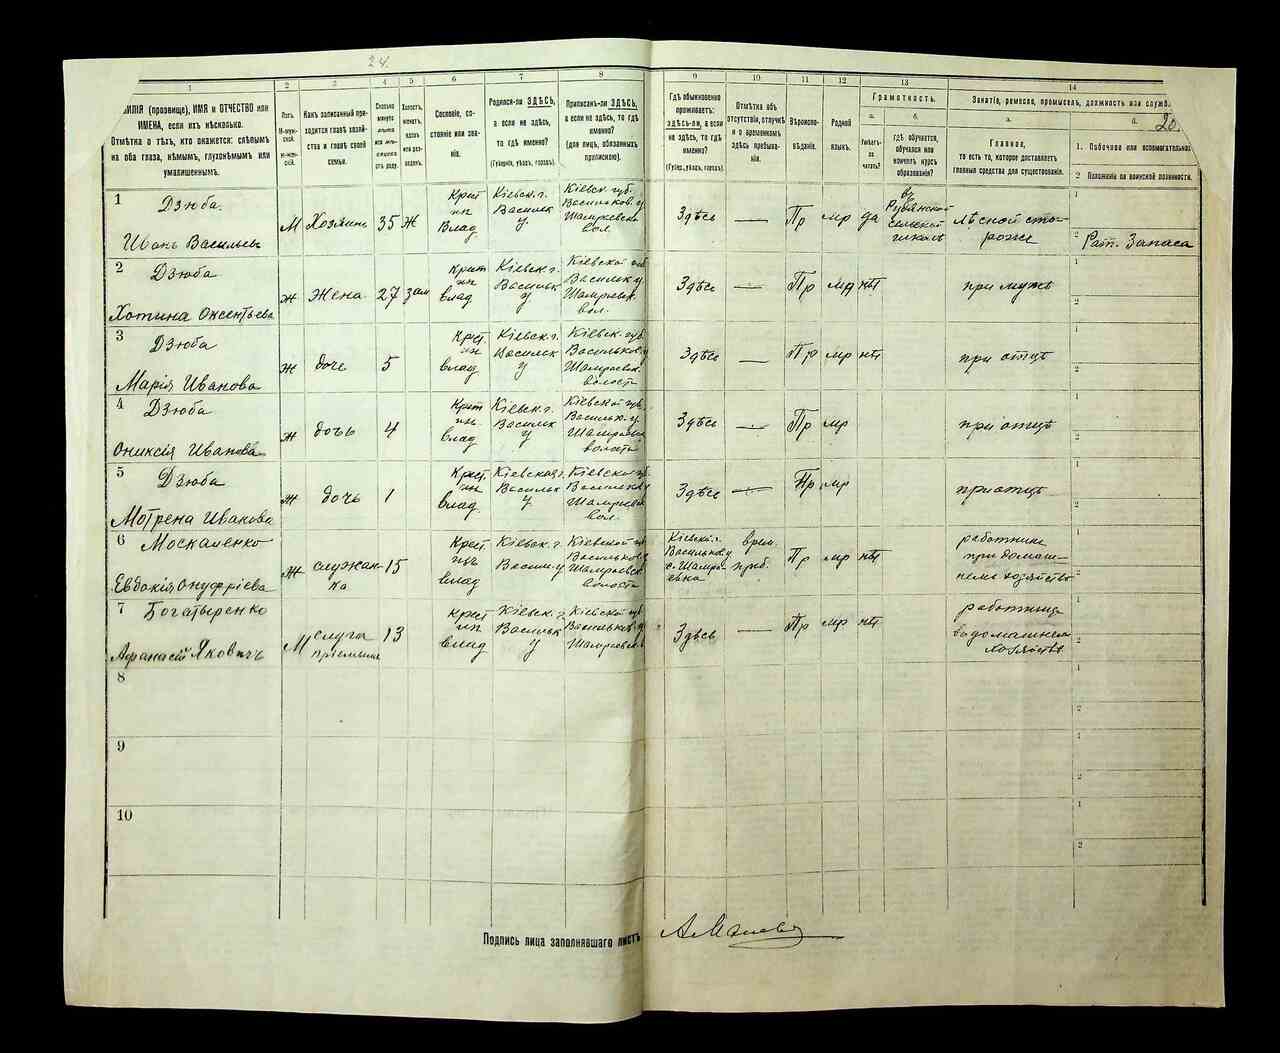 24.
1 2 3 4 5 6 7 8 9 10 11 12 13 14
ИЛІЯ (прозвище), ИМЯ и ОТЧЕСТВО или
ИМЕНА, если ихъ нѣсколько.
Отмѣтка о тѣхъ, кто окажется: слѣпымъ
на оба глаза, нѣмымъ, глухонѣмымъ или
умалишеннымъ.
Полъ.
М-муж-
ской.
Ж-жен-
скій.
Какъ записанный при-
ходится главѣ хозяй-
ства и главѣ своей
семьи.
Сколько
минуло
Холостъ,
женатъ,
вдовъ
или раз-
веденъ.
Сословіе, со-
стояніе или зва-
ніе.
Родился-ли ЗДѢСЬ,
а если не здѣсь,
то гдѣ именно?
(Губернія, уѣздъ, городъ).
Приписанъ-ли ЗДѢСЬ,
а если не здѣсь, то гдѣ
именно?
(для лицъ, обязанныхъ
припискою).
Гдѣ обыкновенно
проживаетъ:
здѣсь-ли, а если
не здѣсь, то гдѣ
именно?
(Губер., уѣздъ, городъ).
Отмѣтка объ
отсутствіи, отлучкѣ
и о временномъ
здѣсь пребыва-
ніи.
Вѣроиспо-
вѣданіе.
Родной
языкъ.
Грамотность.
а.
Умѣетъ-
ли
читать?
б.
гдѣ обучается,
обучался или
кончилъ курсъ
образованія?
Занятіе, ремесло, промыселъ, должность или служб.
а.
Главное,
то есть то, которое доставляетъ
главныя средства для существованія.
б.
20.
1. Побочное или вспомогательное
2 Положеніе по воинской повинности.
1 Дзюба.
Иванъ Васильевъ
М Хозяинъ 35 Ж
Крест
ин
Влад
Кіевск. г.
Васильк
у.
Кіевск. губ.
Васильков. у
Шамраевской
вол.
Здѣсь — Пр мр да
въ
сельской
школѣ
лѣсной сто-
рожъ
1
2 Ряд. Запаса
2 Дзюба
Хотина Оксентьева
ж Жена 27 зам
Крест
ин
влад
Кіевск. г.
Васильк
у
Кіевской губ
Васильк у.
Шамраевск
вол.
Здѣсь — Пр мр нѣт при мужѣ
1
2
3 Дзюба
Марія Иванова
ж дочь 5
Крест.
ин
влад
Кіевск. г.
Васильк
у
Кіевск. губ.
Васильков. у
Шамраевск.
волость
Здѣсь — Пр мр нѣт при отцѣ
1
2
4 Дзюба
Ониксія Иванова
ж дочь 4
Крест
ин.
влад
Кіевск. г.
Васильк
у
Кіевской губ
Васильк. у.
Шамраевск
волости
Здѣсь — Пр мр при отцѣ
1
2
5 Дзюба
Мотрена Иванова
ж дочь 1
Крест.
ин
влад.
Кіевская г.
Васильк
у.
Кіевской губ.
Васильков у
Шамраевск
вол.
Здѣсь — Пр мр при отцѣ
1
2
6 Москаленко
Евдокія Онуфріева
Ж служан-
ка
15
Крест.
влад
Кіевск. г.
Васил. у
Кіевской губ
Васильков у
Шамраевск
волости
Кіевск. г.
Васильков у
с. Шамра-
евка
врем.
приб.
Пр мр нѣт
работница
при домаш-
немъ хозяйствѣ
1
2
7 Богатыренко
Афанасій Яковичъ
М слуга
пріемышъ
13
Крест
ин
влад
Кіевск. г.
Васильк
у
Кіевской губ
Васильков у
Шамраевск.
Здѣсь — Пр мр нѣт
работница
въ домашнемъ
хозяйствѣ
1
2
8
1
2
9
1
2
10
1
2
Подпись лица заполнявшаго листъ